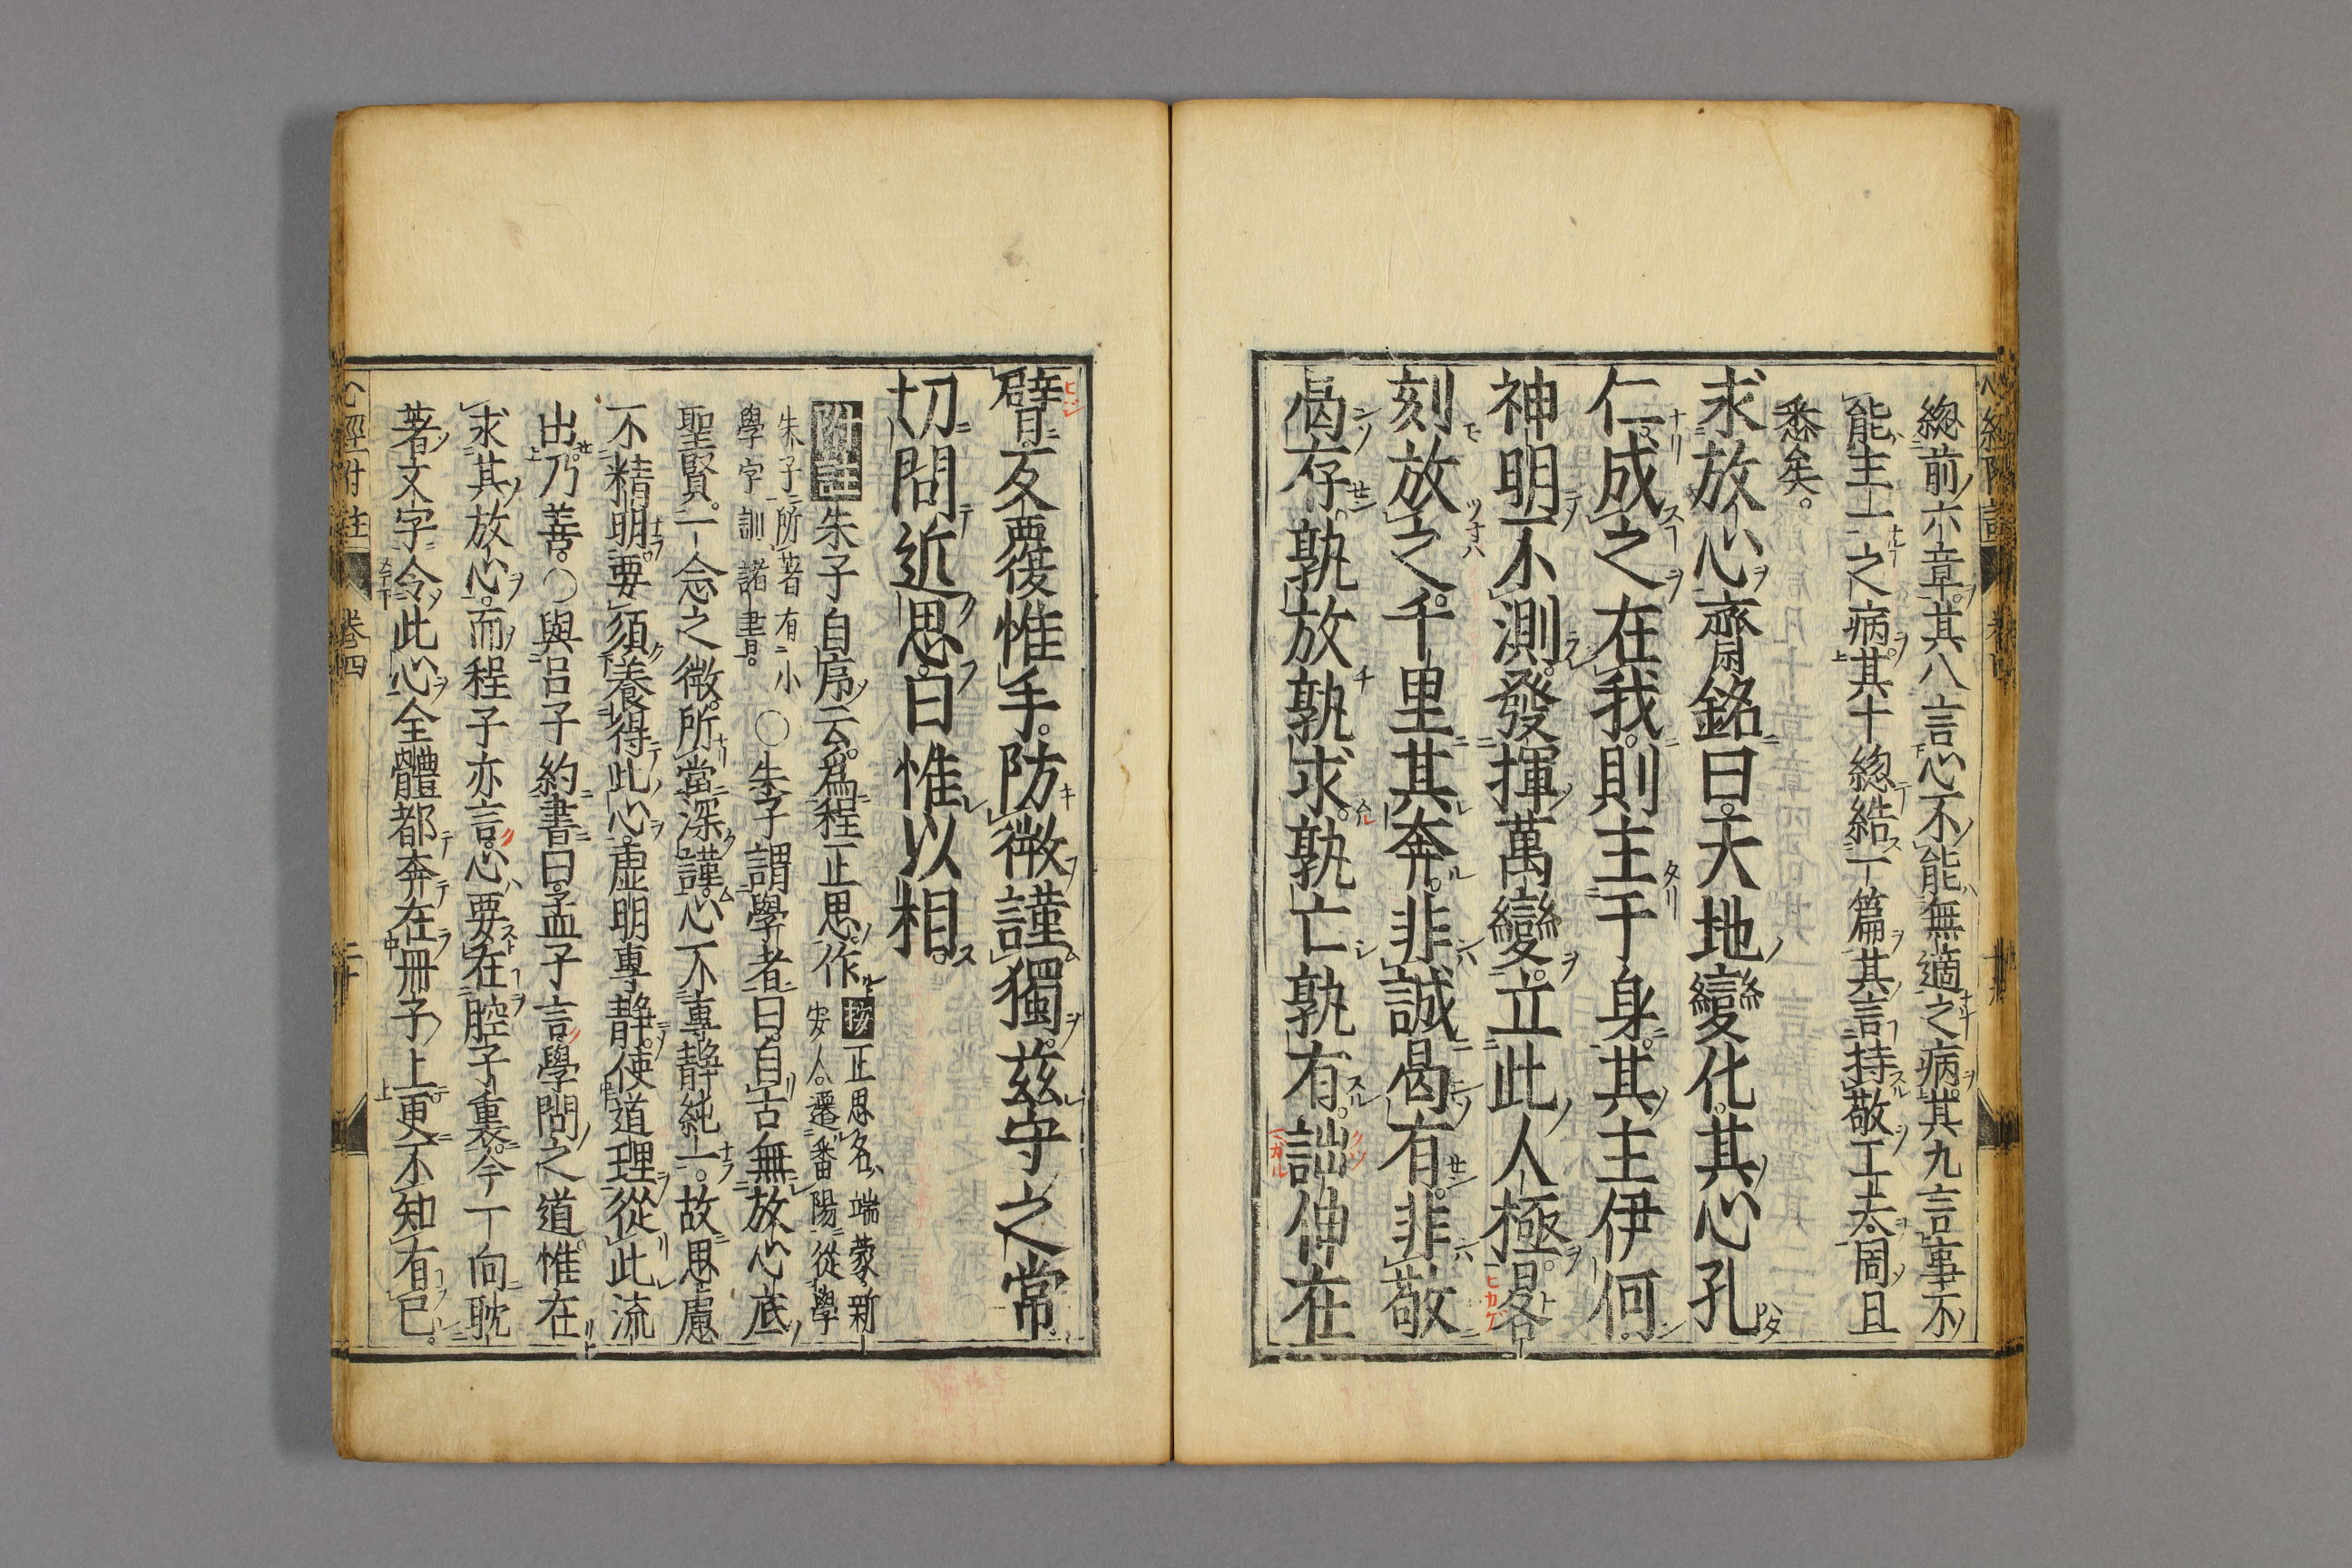 總前六章其八言心不能無適之病其九言事不
能主一之病其十總結一篇其言持敬工夫周且
悉矣
求放心齋銘曰天地變化其心孔
仁成之在我則主于身其主伊何
神明不測發揮萬變立此人極晷
刻放之千里其奔非誠曷有非敬
曷存孰放孰求孰亡孰有詘伸在
臂反覆惟手防微謹獨玆守之常
切問近思曰惟以相
附註朱子自序云爲程正思作按正思名端蒙新
安人遷番陽從學
朱子所著有小
學字訓諸書○朱子謂學者曰自古無放心底
聖賢一念之微所當深謹心不專靜純一故思慮
不精明要須養得此心虚明專靜使道理從此流
出乃善○與呂子約書曰孟子言學問之道惟在
求其放心而程子亦言心要在腔子裏今一向耽
著文字令此心全體都奔在冊子上更不知有已
心經附註 卷四